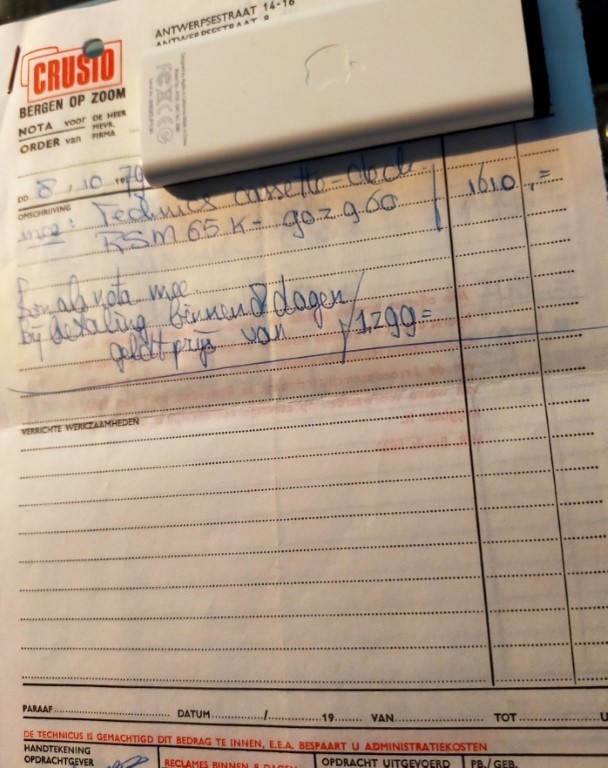 ANTWERPSESTRAAT 14-16
CRUSIO
BERGEN OP ZOOM
NOTA voor DE HEER
MEVR.
ORDER van FIRMA
DD 8.10.1979
OMSCHRIJVING
mee: Technics cassette-deck
RSM 65 K - 90z960 1610,=
Bon als nota mee
Bij betaling binnen 8 dagen
geldt prijs van ƒ 1299=
VERRICHTE WERKZAAMHEDEN
PARAAF DATUM / 19 VAN TOT U
DE TECHNICUS IS GEMACHTIGD DIT BEDRAG TE INNEN, E.E.A. BESPAART U ADMINISTRATIEKOSTEN
HANDTEKENING
OPDRACHTGEVER
RECLAMES BINNEN 8 DAGEN
OPDRACHT UITGEVOERD
PB./GEB.